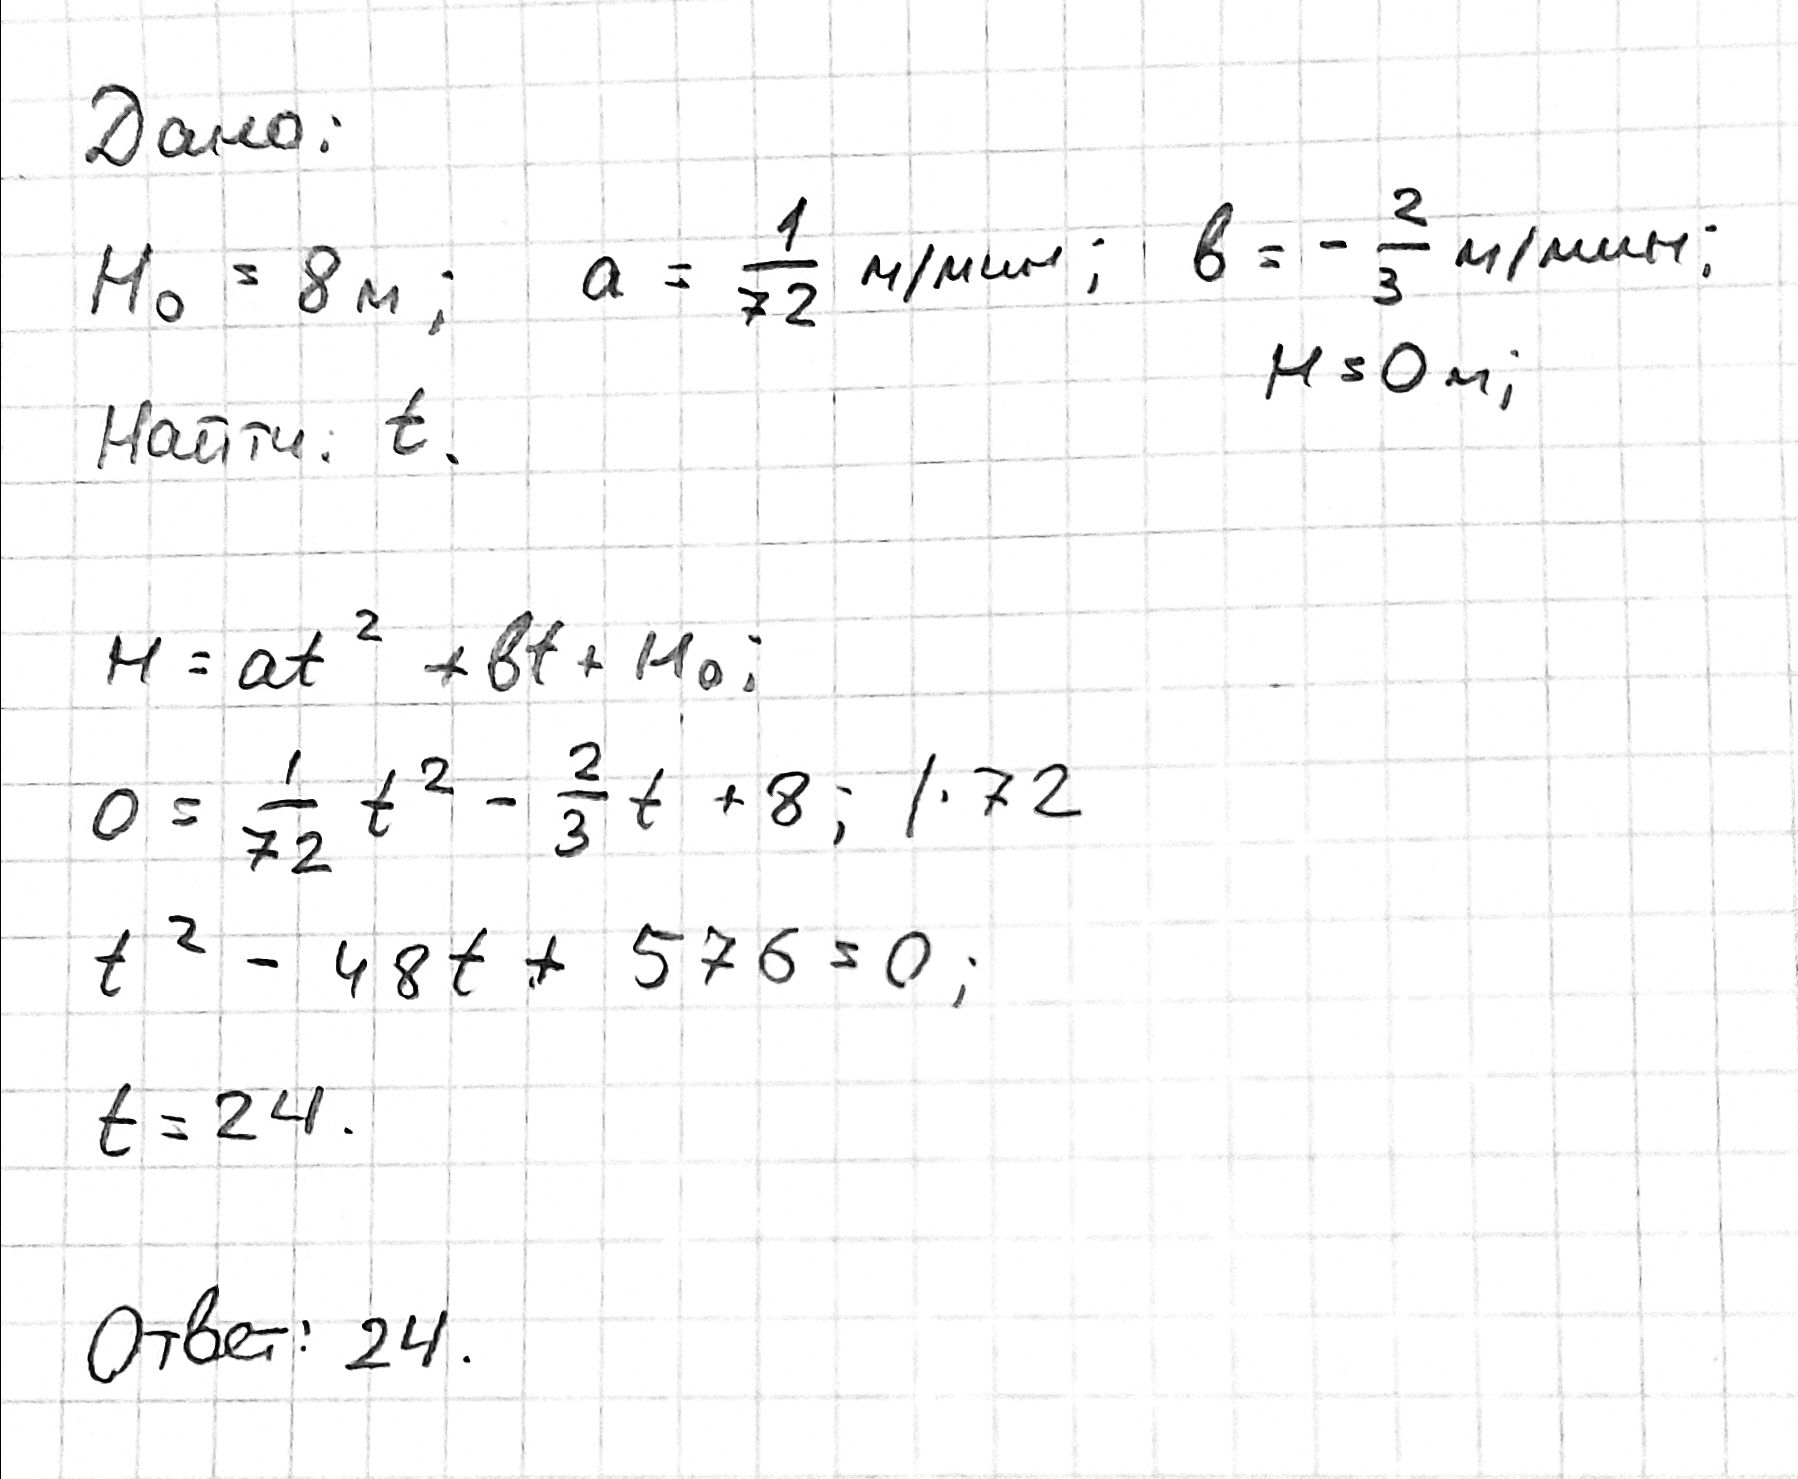 Дано:
H₀ = 8 м; a = 1/72 м/мин; в = - 2/3 м/мин;
H = 0 м;
Найти: t.
H = at² + вt + H₀;
0 = 1/72 t² - 2/3 t + 8; /·72
t² - 48t + 576 = 0;
t = 24.
Ответ: 24.